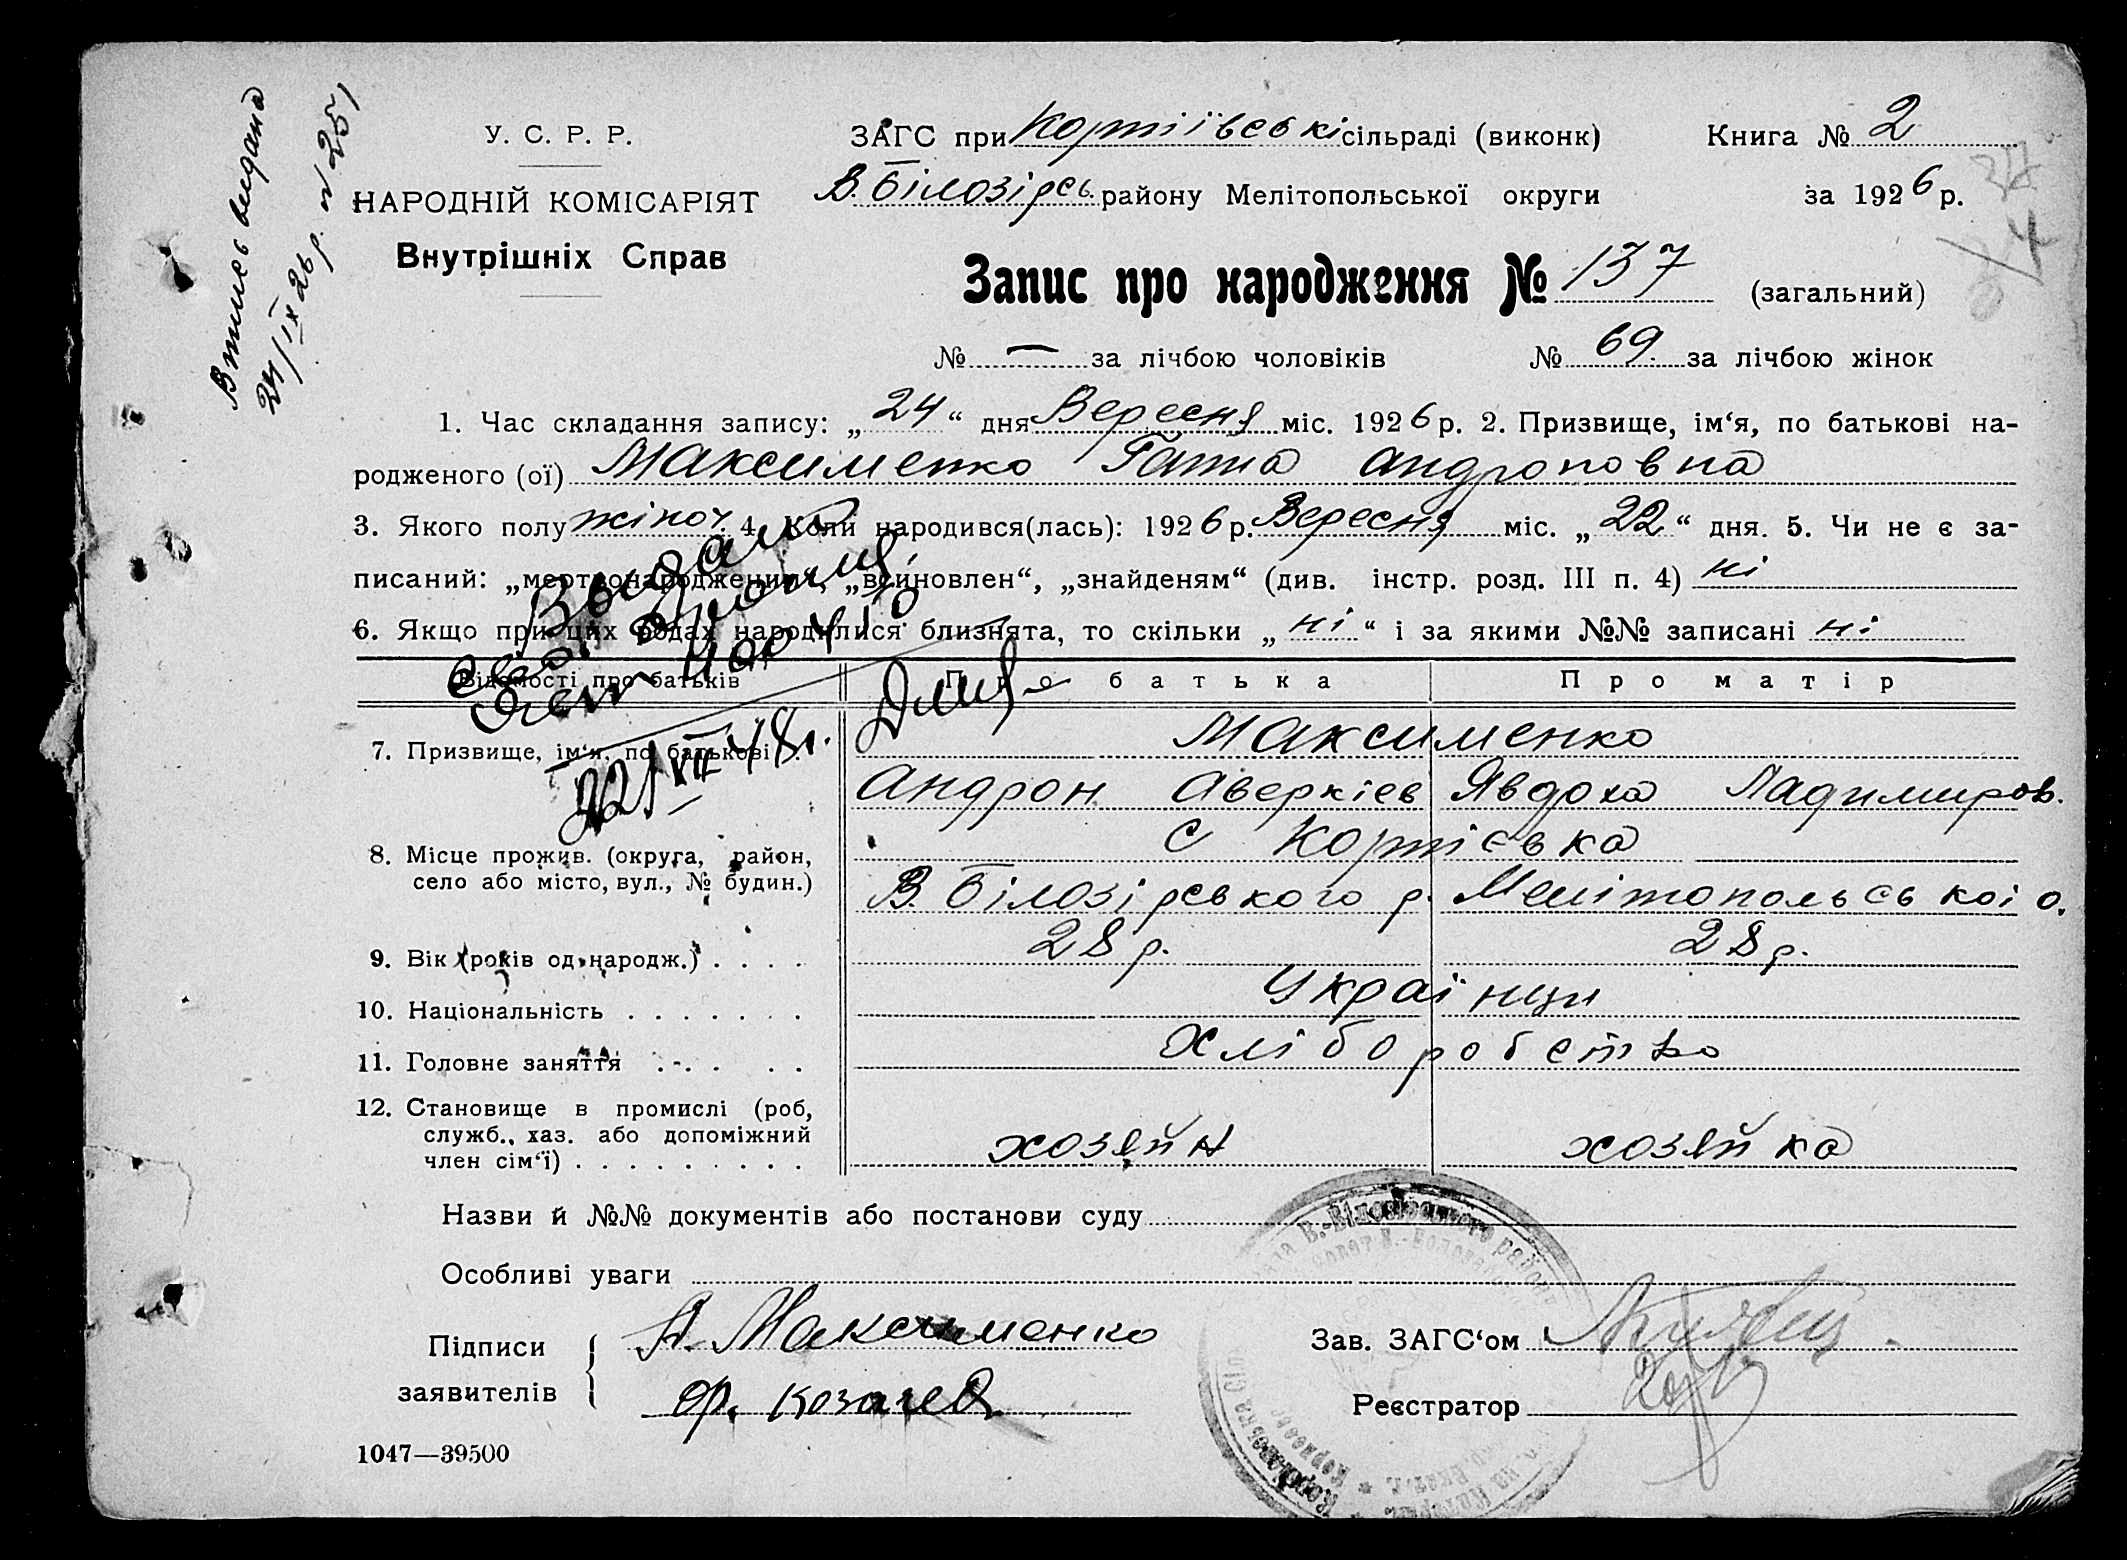 Втпись видана
24/IX 26 р. № 251
У. С. Р. Р.
НАРОДНІЙ КОМІСАРІЯТ
Внутрішніх Справ
ЗАГС при Кортіївські сільраді (виконк) Книга № 2
В. Білозірсь. району Мелітопольської округи за 1926 р.
Запис про народження № 137 (загальний)
№ — за лічбою чоловіків № 69 за лічбою жінок
1. Час складання запису: „24“ дня Вересня міс. 1926 р. 2. Призвище, ім‘я, по батькові на-
родженого (ої) Максименко Ганна Андроновна
3. Якого полу жіноч. 4. Коли народився(лась): 1926 р. Вересня міс. „22“ дня. 5. Чи не є за-
писаний: „мертвонародженим“, „всиновлен“, „знайденям“ (див. інстр. розд. III п. 4) ні
6. Якщо при цих родах народилися близнята, то скільки „ні“ і за якими №№ записані ні
Відомості про батьків Про батька Про матір
7. Призвище, ім‘я, по батькові Максименко
Андрон Аверкіев Явдоха Ладимиров.
8. Місце прожив. (округа, район, с Кортієвка
село або місто, вул., № будин.) В. Білозірського р. Мелітопольської о.
9. Вік (років од народж.) 28 р. 28 р.
10. Національність Українци
11. Головне заняття Хліборобство
12. Становище в промислі (роб,
служб., хаз. або допоміжний
член сім‘ї) хозяйн хозяйка
Назви й №№ документів або постанови суду
Особливі уваги
Підписи А. Максименко
заявителів
Зав. ЗАГС‘ом
Реєстратор
1047—39500